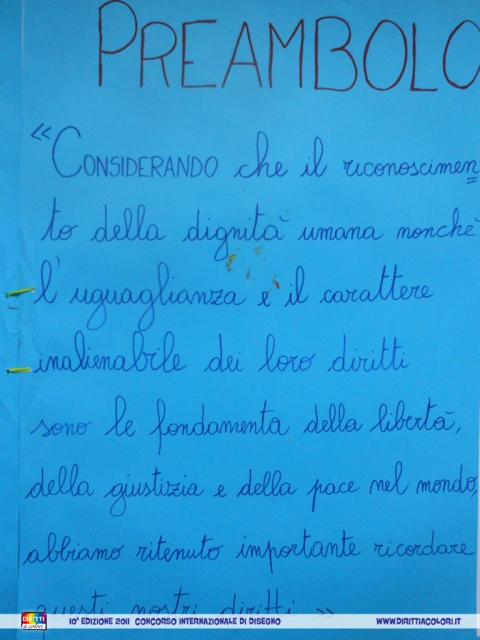 PREAMBOLO
“CONSIDERANDO che il riconoscimen=
to della dignità umana nonchè
l'uguaglianza e il carattere
inalienabile dei loro diritti
sono le fondamenta della libertà,
della giustizia e della pace nel mondo,
abbiamo ritenuto importante ricordare
questi nostri diritti.”
DIRITTI a colori 10ª EDIZIONE 2011 CONCORSO INTERNAZIONALE DI DISEGNO WWW.DIRITTIACOLORI.IT